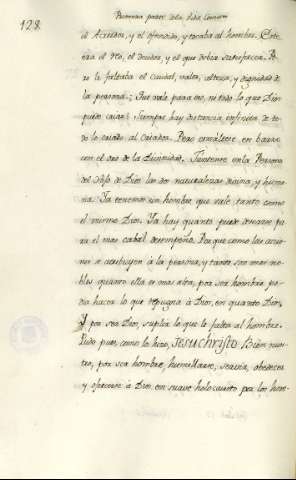 128.
Primera parte dela Vida Comun
el Acreedor, y el ofendido, y tocaba al hombre. Este
era el reo, el deudor, y el que debia satisfacer. Pe-
ro le faltaba el caudal, valor, alteza, y dignidad de
la persona; Pues vale para eso, ni todo lo que Dios
puede criar; Siempre hay distancia infinita de to-
do lo criado al Criador. Pero
con el oro de la Divinidad. Juntense en la Persona
del Hijo de Dios las dos naturalezas divina, y huma-
na. Ya tenemos un hombre que vale tanto como
el mismo Dios. Ya hay quanto puede desearse pa-
ra el mas cabal desempeño. Porque como las accio-
nes se atribuyen à la persona, y tanto son mas no-
bles quanto ella es mas alta, por ser hombre po-
dia hacer lo que repugna à Dios, en quanto Dios,
y por ser Dios, suplia lo que le falta al hombre.
Pudo pues, como lo hizo, Jesuchristo Bien nues-
tro, por ser hombre, humillarse, servir, obedecer
y ofrecerse à Dios en suave holocausto por los hom-